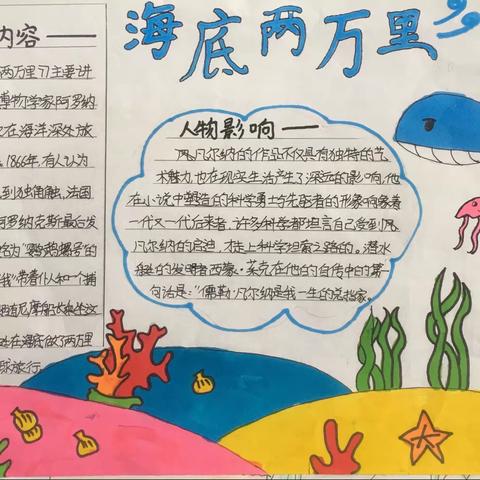 海底两万里
内容——
两万里》主要讲
博物学家阿罗纳
在海洋深处旅
1866年,有人认为
到独角触,法国
阿罗纳克斯最后发
名为"鹦鹉螺号的
我"带着仆人和一个捕
尼摩船长乘坐这
在海底做了两万里
球旅行
人物影响——
凡尔纳的作品不仅具有独特的艺
术魅力,也在现实生活产生了深远的影响,他
在小说中塑造的科学勇士的先驱者的形象影象着
一代又一代后来者,许多科学都坦言自己受到凡
凡尔纳的启迪,推上科学坦索之路的。潜水
艇的发明者西蒙·莱克在他的自传中的第一
句话是:"儒勒·凡尔纳是我一生的总指家。